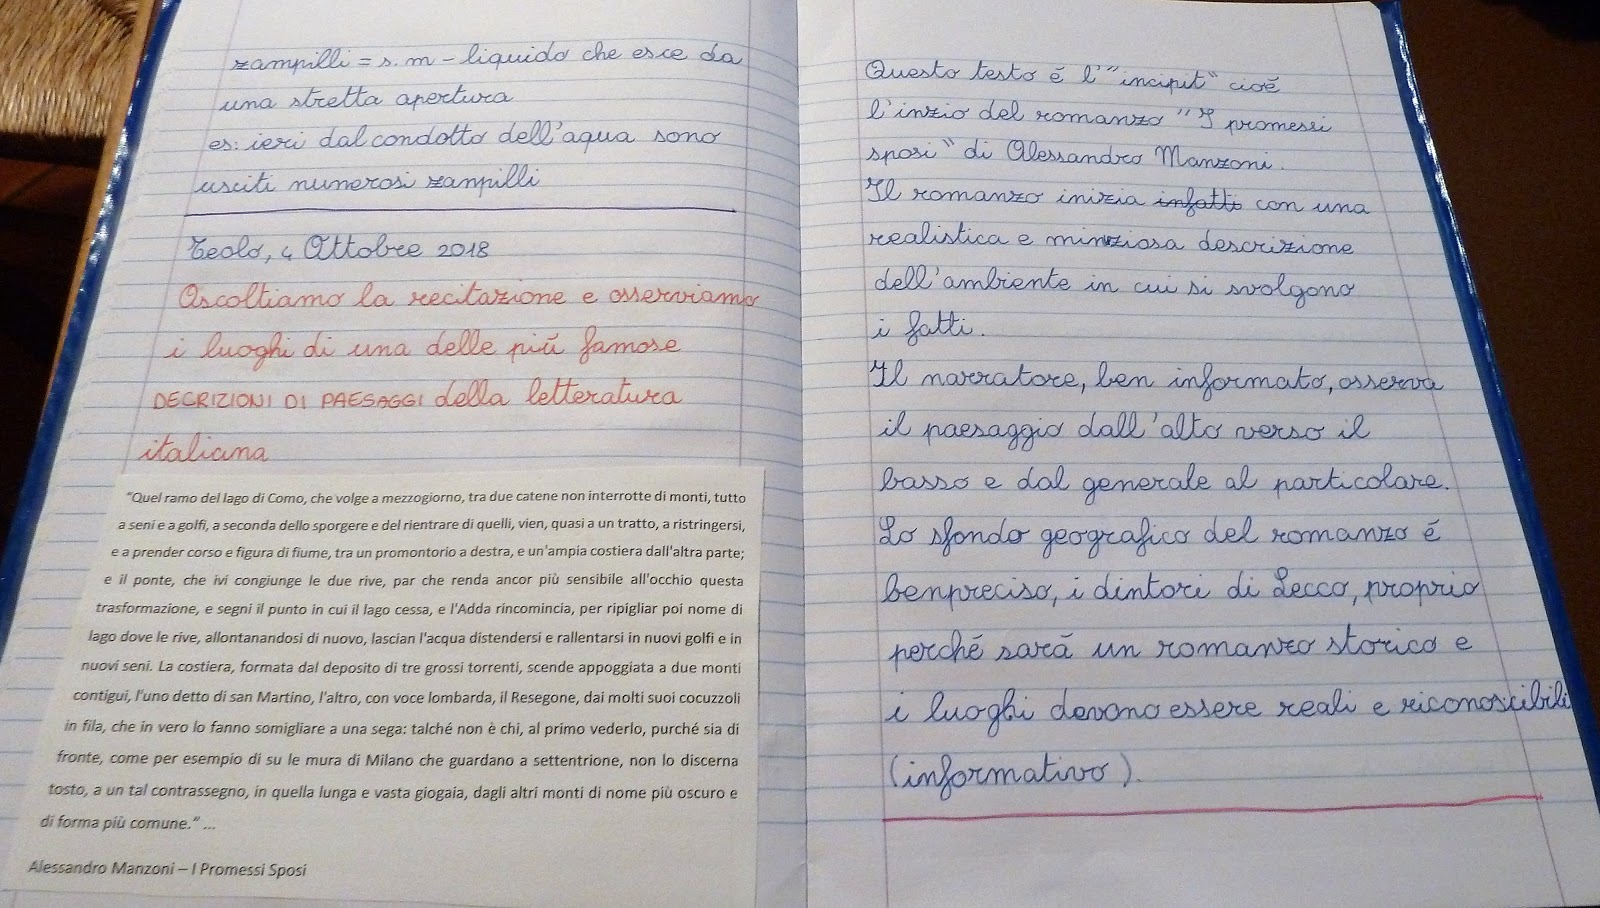 zampilli = s.m - liquido che esce da
una stretta apertura
es: ieri dal condotto dell'aqua sono
usciti numerosi zampilli
Teolo, 4 Ottobre 2018
Ascoltiamo la recitazione e osserviamo
i luoghi di una delle più famose
DECRIZIONI DI PAESAGGI della letteratura
italiana
"Quel ramo del lago di Como, che volge a mezzogiorno, tra due catene non interrotte di monti, tutto
a seni e a golfi, a seconda dello sporgere e del rientrare di quelli, vien, quasi a un tratto, a ristringersi,
e a prender corso e figura di fiume, tra un promontorio a destra, e un'ampia costiera dall'altra parte;
e il ponte, che ivi congiunge le due rive, par che renda ancor più sensibile all'occhio questa
trasformazione, e segni il punto in cui il lago cessa, e l'Adda rincomincia, per ripigliar poi nome di
lago dove le rive, allontanandosi di nuovo, lascian l'acqua distendersi e rallentarsi in nuovi golfi e in
nuovi seni. La costiera, formata dal deposito di tre grossi torrenti, scende appoggiata a due monti
contigui, l'uno detto di san Martino, l'altro, con voce lombarda, il Resegone, dai molti suoi cocuzzoli
in fila, che in vero lo fanno somigliare a una sega: talché non è chi, al primo vederlo, purché sia di
fronte, come per esempio di su le mura di Milano che guardano a settentrione, non lo discerna
tosto, a un tal contrassegno, in quella lunga e vasta giogaia, dagli altri monti di nome più oscuro e
di forma più comune." ...
Alessandro Manzoni – I Promessi Sposi
Questo testo é l'"incipit" cioé
l'inzio del romanzo "I promessi
sposi" di Alessandro Manzoni.
Il romanzo inizia infatti con una
realistica e minuziosa descrizione
dell'ambiente in cui si svolgono
i fatti.
Il narratore, ben informato, osserva
il paesaggio dall'alto verso il
basso e dal generale al particolare.
Lo sfondo geografico del romanzo é
benpreciso, i dintori di Lecco, proprio
perché sará un romanzo storico e
i luoghi devono essere reali e riconoscibili
(informativo).